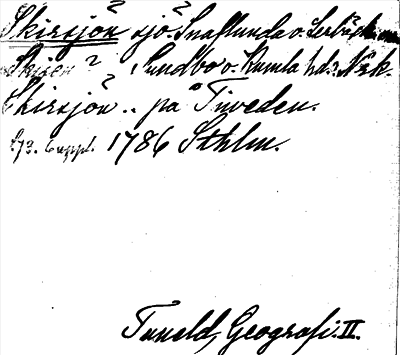 Skirsjön sjö? Snaflunda o. Lerbäck
Skien? Sundbo o. Kumla hd:r Nrk.
Skirsjön? .. på Tiveden.
s. 73. 6 uppl. 1786 Sthlm.
Tuneld, Geografi. II.